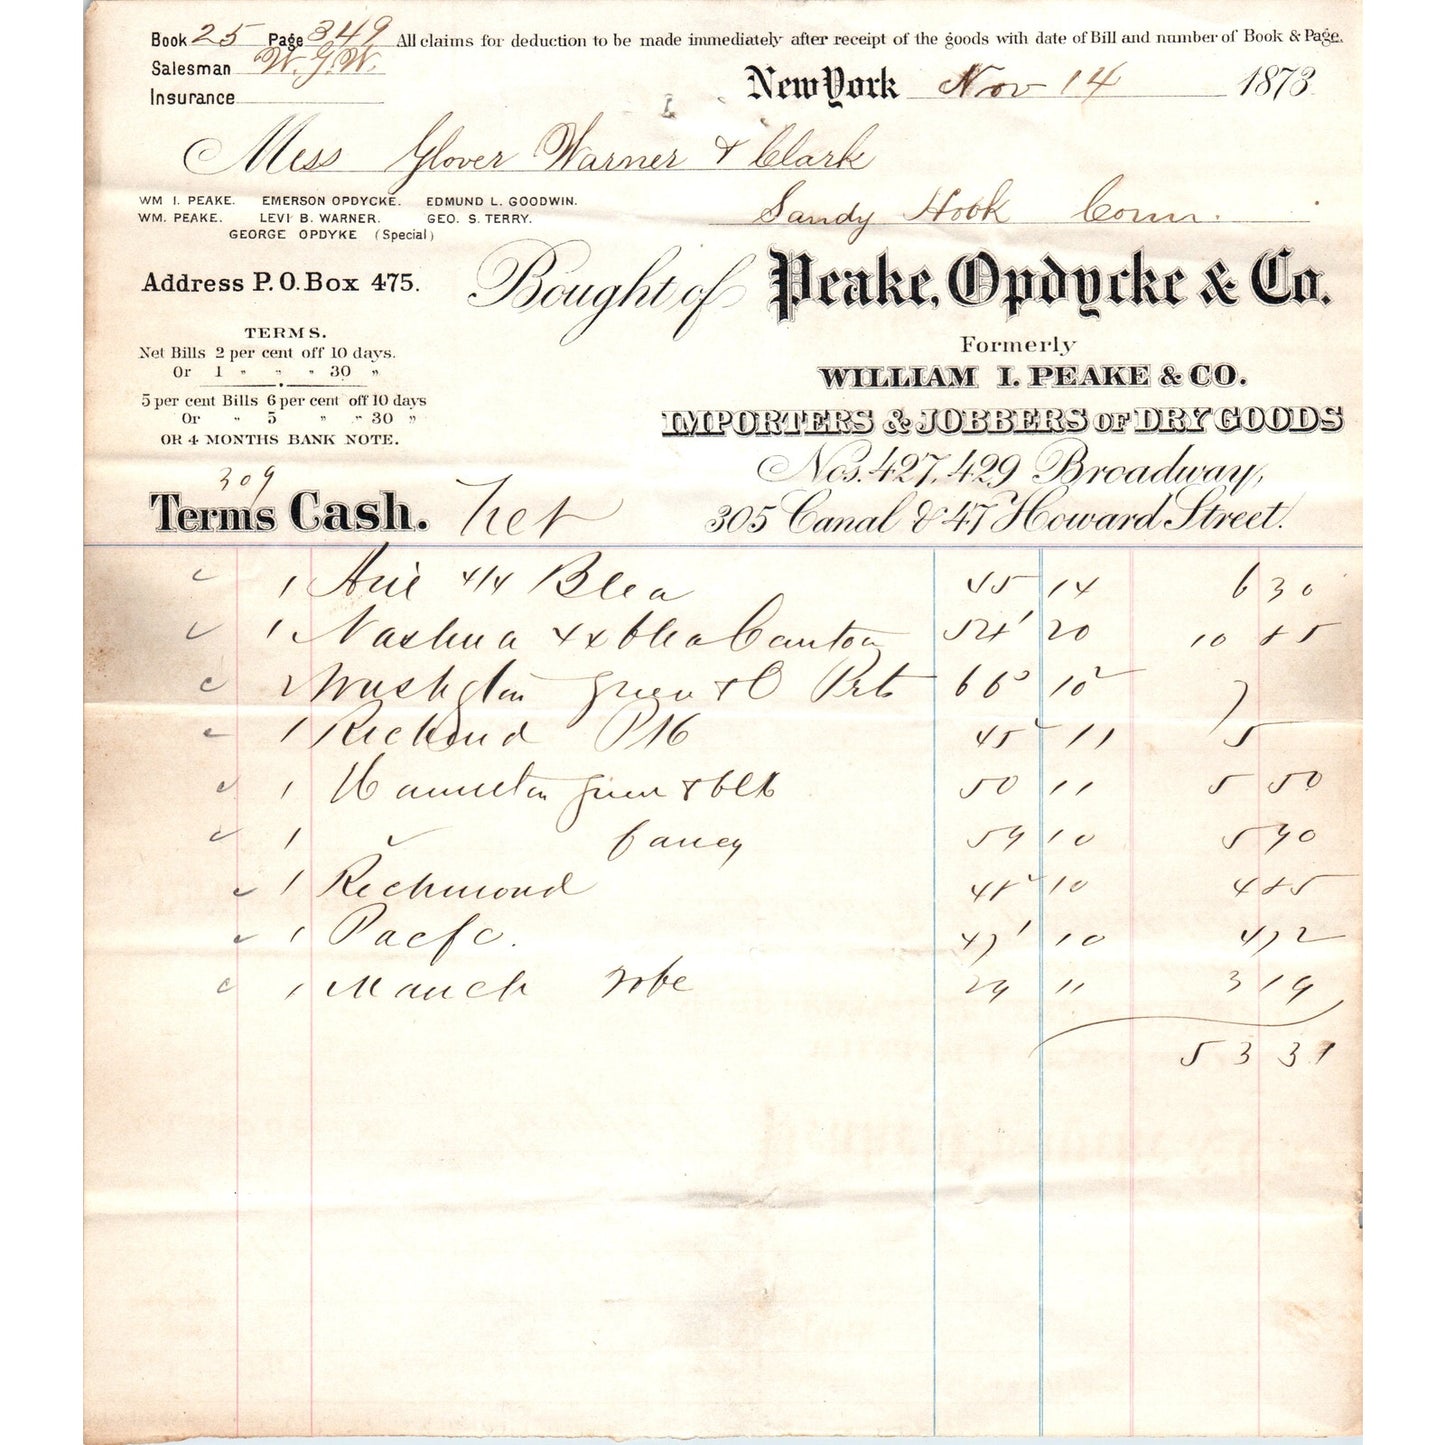 Book 25 Page 349 All claims for deduction to be made immediately after receipt of the goods with date of Bill and number of Book & Page.
Salesman W.G.W.
Insurance
New York Nov 14 1873
Mess Glover Warner & Clark
Sandy Hook Conn.
WM I. PEAKE. EMERSON OPDYCKE. EDMUND L. GOODWIN.
WM. PEAKE. LEVI B. WARNER. GEO. S. TERRY.
GEORGE OPDYKE (Special)
Address P. O. Box 475.
Bought of Peake, Opdycke & Co.
Formerly
WILLIAM I. PEAKE & CO.
IMPORTERS & JOBBERS OF DRY GOODS
Nos. 427, 429 Broadway,
305 Canal & 47 Howard Street.
TERMS.
Net Bills 2 per cent off 10 days.
Or 1 " " " 30 "
5 per cent Bills 6 per cent off 10 days
Or " 5 " " 30 "
OR 4 MONTHS BANK NOTE.
309
Terms Cash. Net
1 4/4 Blea 45 14 6 30
1 Nashua 4x blea Canton 54¹ 20 10 85
Washgton green & O Prts 66³ 10² 7
1 Richmd P16 45² 11 5
1 Hamilton green & blk 50 11 5 50
1 " fancy 59 10 5 90
1 Richmond 48² 10 4 85
1 Pacfc. 47¹ 10 4 72
1 Manch robe 29 11 3 19
53 31